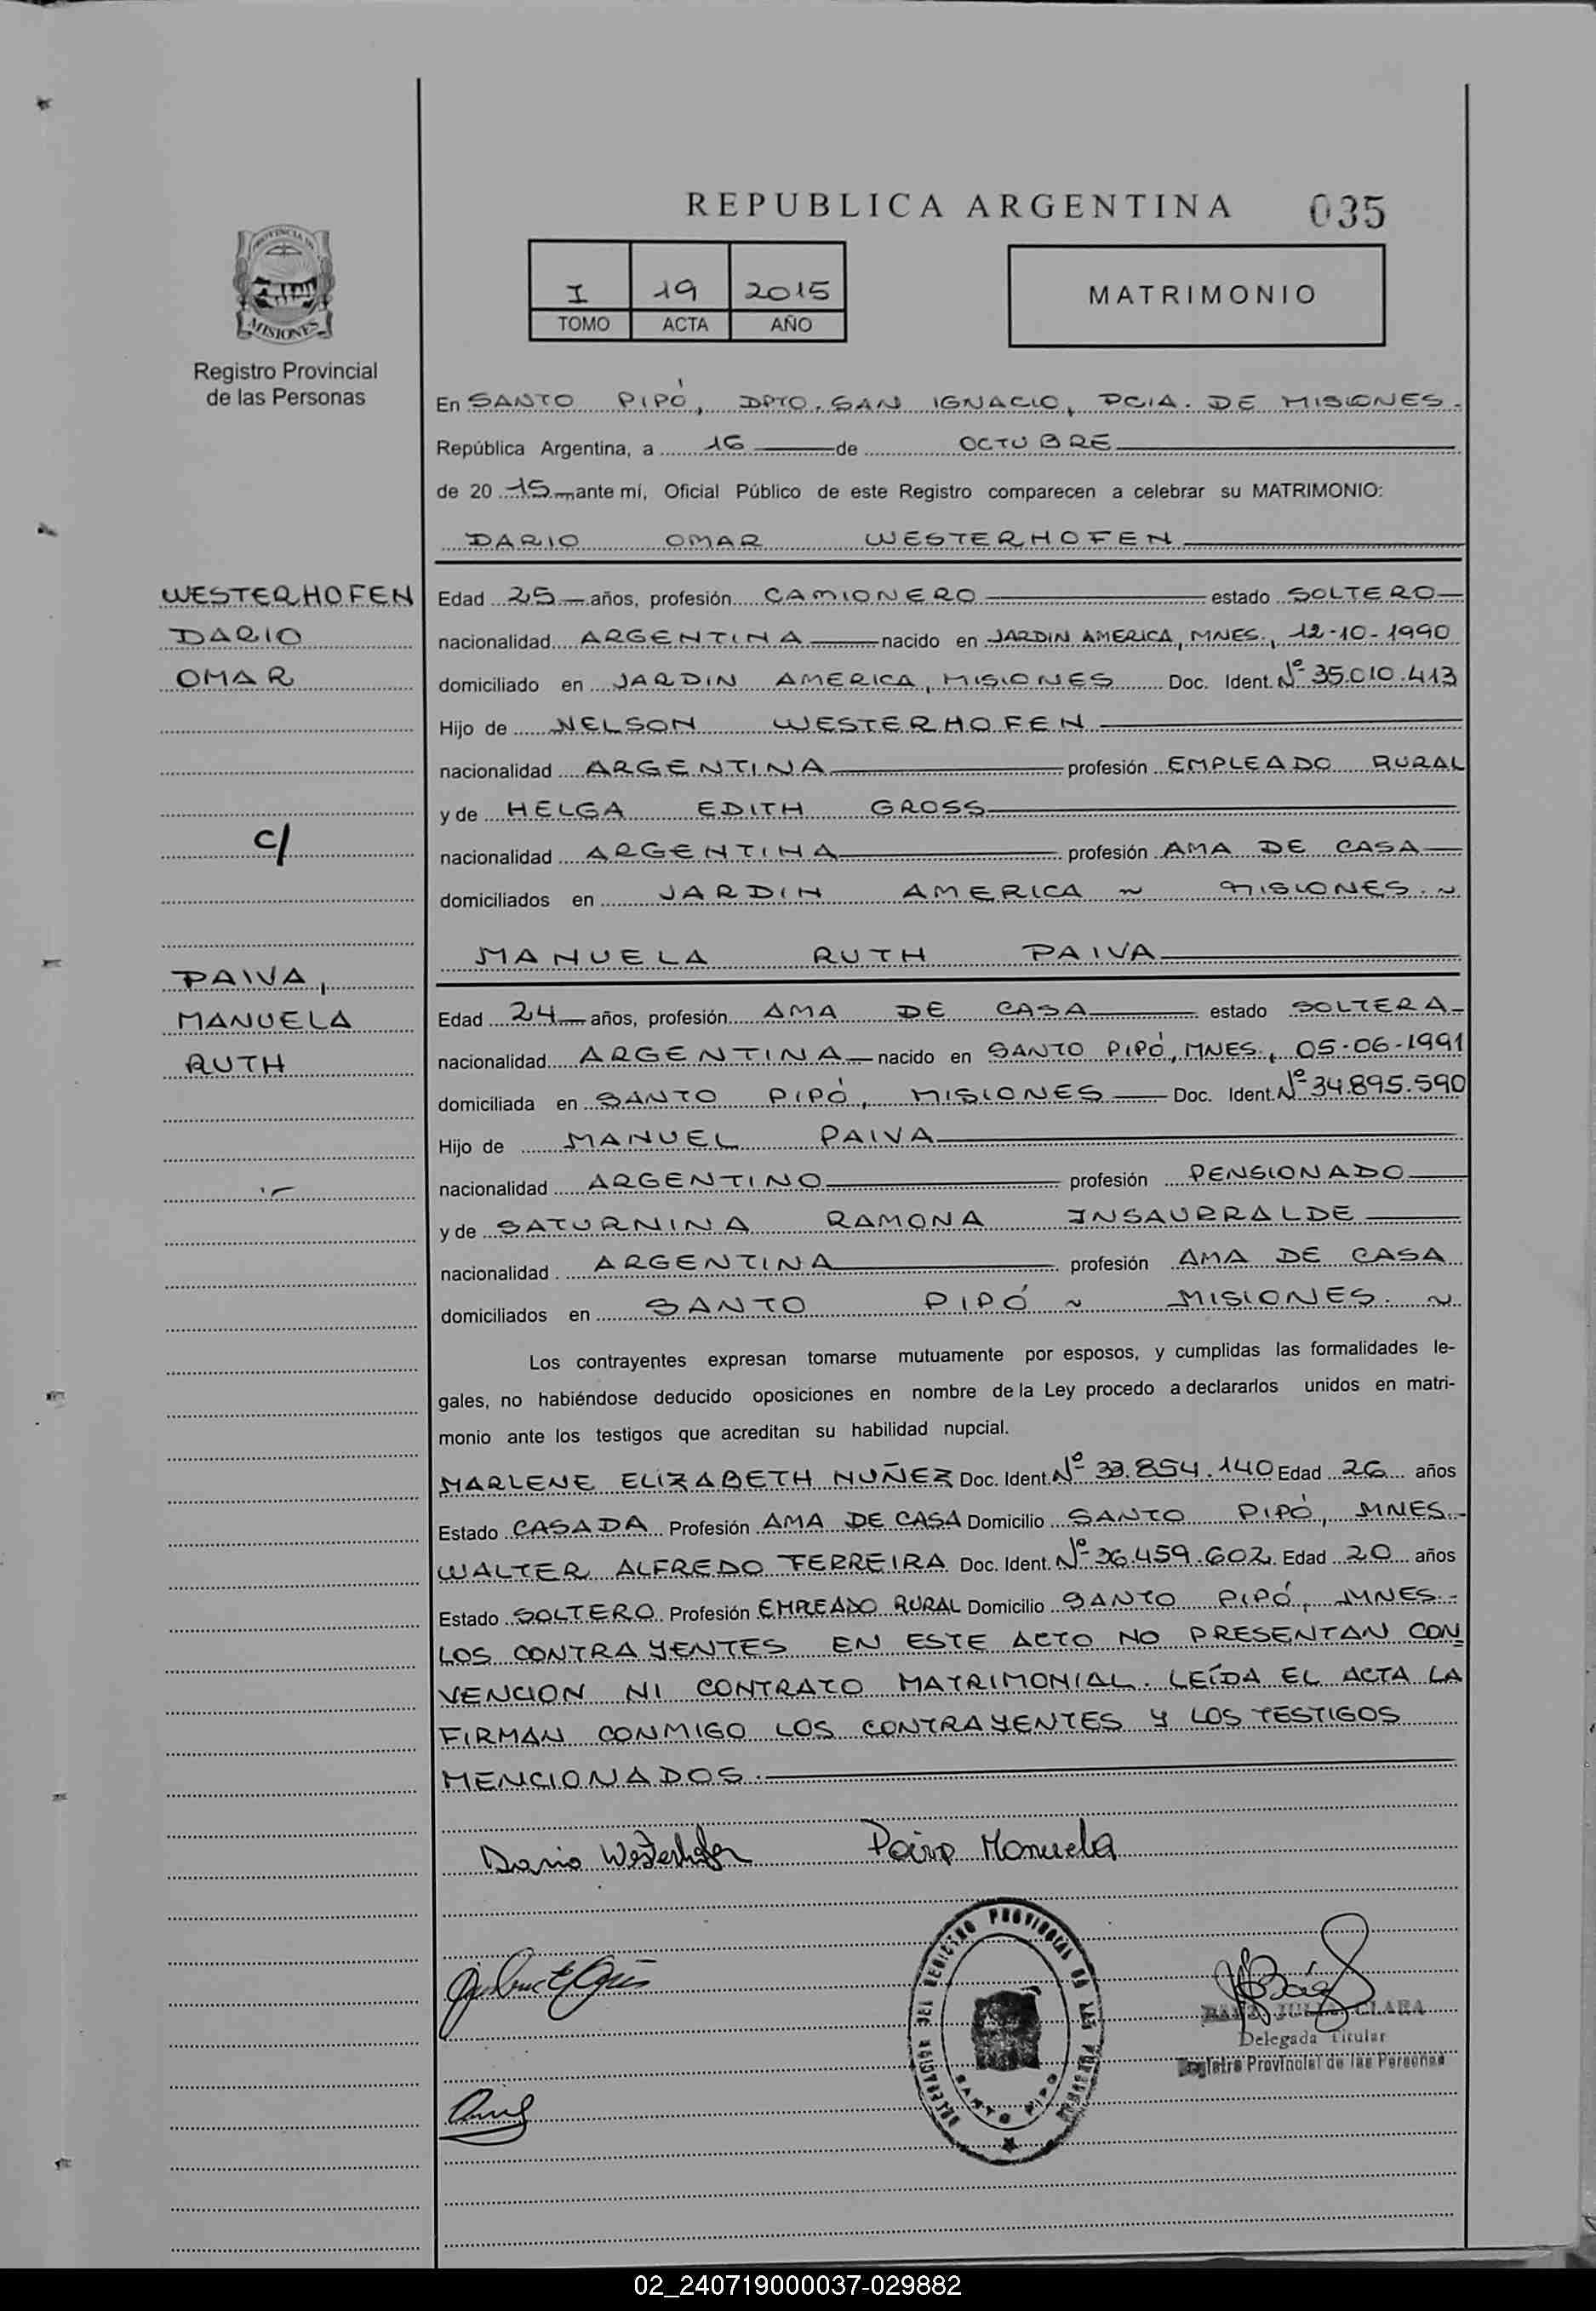 REPUBLICA ARGENTINA 035
PROVINCIA DE
MISIONES
Registro Provincial
de las Personas
I 19 2015
TOMO ACTA AÑO
MATRIMONIO
En SANTO PIPÓ, DPTO. SAN IGNACIO, PCIA. DE MISIONES.
República Argentina, a 16 de OCTUBRE
de 20 15 ante mí, Oficial Público de este Registro comparecen a celebrar su MATRIMONIO:
DARIO OMAR WESTERHOFEN
WESTERHOFEN
DARIO
OMAR
C/
PAIVA,
MANUELA
RUTH
Edad 25 años, profesión CAMIONERO estado SOLTERO
nacionalidad ARGENTINA nacido en JARDIN AMERICA, MNES., 12-10-1990
domiciliado en JARDIN AMERICA, MISIONES Doc. Ident. Nº 35.010.413
Hijo de NELSON WESTERHOFEN
nacionalidad ARGENTINA profesión EMPLEADO RURAL
y de HELGA EDITH GROSS
nacionalidad ARGENTINA profesión AMA DE CASA
domiciliados en JARDIN AMERICA ~ MISIONES. ~
MANUELA RUTH PAIVA
Edad 24 años, profesión AMA DE CASA estado SOLTERA
nacionalidad ARGENTINA nacido en SANTO PIPÓ, MNES., 05-06-1991
domiciliada en SANTO PIPÓ, MISIONES Doc. Ident. Nº 34.895.590
Hijo de MANUEL PAIVA
nacionalidad ARGENTINO profesión PENSIONADO
y de SATURNINA RAMONA INSAURRALDE
nacionalidad ARGENTINA profesión AMA DE CASA
domiciliados en SANTO PIPÓ ~ MISIONES. ~
Los contrayentes expresan tomarse mutuamente por esposos, y cumplidas las formalidades le-
gales, no habiéndose deducido oposiciones en nombre de la Ley procedo a declararlos unidos en matri-
monio ante los testigos que acreditan su habilidad nupcial.
MARLENE ELIZABETH NUÑEZ Doc. Ident. Nº 33.854.140 Edad 26 años
Estado CASADA Profesión AMA DE CASA Domicilio SANTO PIPÓ, MNES.-
WALTER ALFREDO FERREIRA Doc. Ident. Nº 36.459.602. Edad 20 años
Estado SOLTERO Profesión EMPLEADO RURAL Domicilio SANTO PIPÓ, MNES.-
LOS CONTRAYENTES EN ESTE ACTO NO PRESENTAN CON=
VENCION NI CONTRATO MATRIMONIAL. LEÍDA EL ACTA LA
FIRMAN CONMIGO LOS CONTRAYENTES Y LOS TESTIGOS
MENCIONADOS.
Dario Westerhofen Paiva Manuela
DEL REGISTRO PROVINCIAL DE LAS PERSONAS
SANTO PIPO
JULIA CLARA
Delegada Titular
Registro Provincial de las Personas
02_240719000037-029882